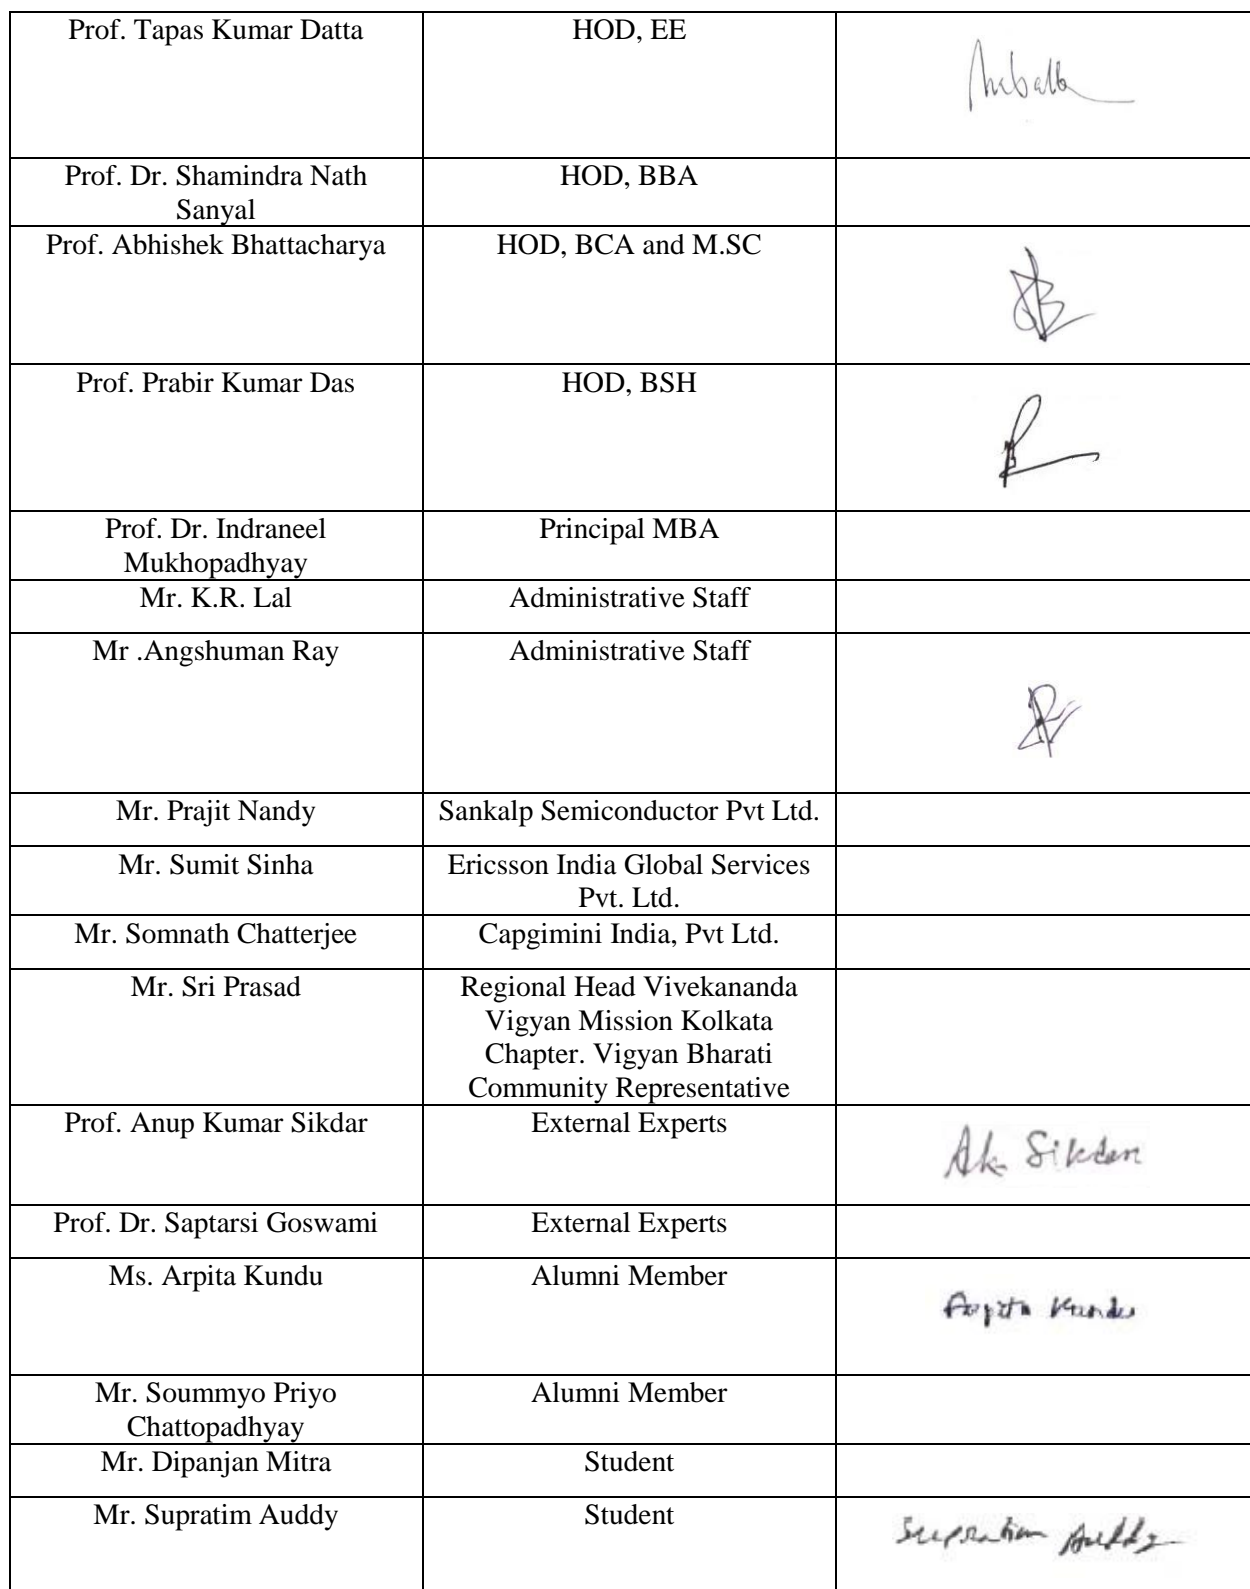 Prof. Tapas Kumar Datta HOD, EE
Prof. Dr. Shamindra Nath HOD, BBA
Sanyal
Prof. Abhishek Bhattacharya HOD, BCA and M.SC
Prof. Prabir Kumar Das HOD, BSH
Prof. Dr. Indraneel Principal MBA
Mukhopadhyay
Mr. K.R. Lal Administrative Staff
Mr .Angshuman Ray Administrative Staff
Mr. Prajit Nandy Sankalp Semiconductor Pvt Ltd.
Mr. Sumit Sinha Ericsson India Global Services
Pvt. Ltd.
Mr. Somnath Chatterjee Capgimini India, Pvt Ltd.
Mr. Sri Prasad Regional Head Vivekananda
Vigyan Mission Kolkata
Chapter. Vigyan Bharati
Community Representative
Prof. Anup Kumar Sikdar External Experts AK Sikdar
Prof. Dr. Saptarsi Goswami External Experts
Ms. Arpita Kundu Alumni Member Arpita Kundu
Mr. Soummyo Priyo Alumni Member
Chattopadhyay
Mr. Dipanjan Mitra Student
Mr. Supratim Auddy Student Supratim Auddy